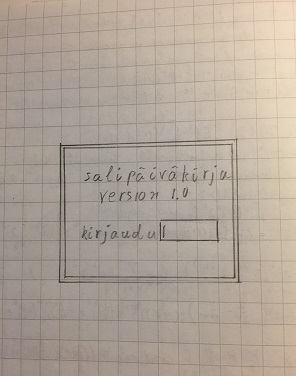 salipäiväkirja
version 1.0
kirjaudu